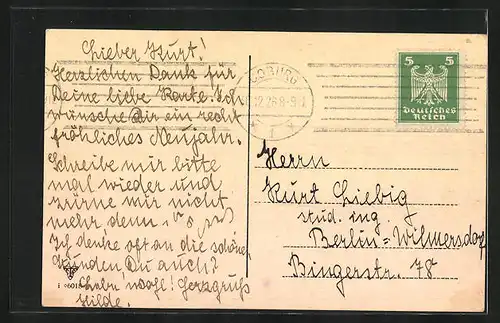 Lieber Kurt!
Herzlichen Dank für
Deine liebe Karte. Ich
wünsche Dir ein recht
fröhliches Neujahr.
Schreibe mir bitte
mal wieder und
zürne mir nicht
mehr, denn
Ich denke oft an die schönen
Stunden, Du auch?
Lebe wohl! Herzgruß
Hilde.
COBURG
12.26.8-9
5 5
Deutsches
Reich
Herrn
Kurt Liebig
stud. ing.
Berlin=Wilmersdorf
Bingerstr. 78